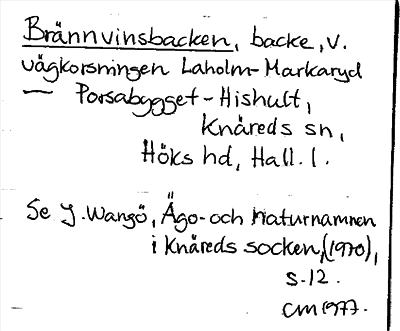 Brännvinsbacken, backe, v.
vägkorsningen Laholm-Markaryd
— Porsabygget - Hishult,
Knäreds sn,
Höks hd, Hall. l.
Se J. Wangö, Ägo- och Naturnamnen
i Knäreds socken, (1970),
s. 12.
CM 1977.